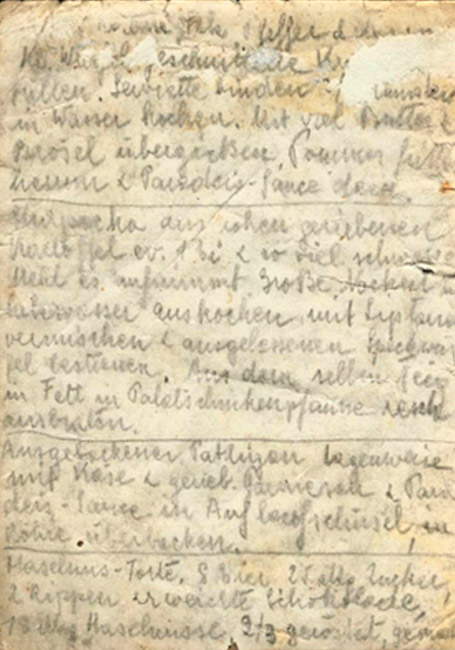 Pfeffer
geschnittene
füllen. Serviette binden
in Wasser kochen. Mit viel Butter &
Brösel übergießen, Pommes frittes
herum & Paradeis-Sauce dazu.
aus rohen geriebenen
Kartoffel ev. 1 Ei & so viel schwarzes
Mehl es aufnimmt Große Nockerl in
Salzwasser auskochen mit Liptauer
vermischen & ausgelassenen Speckwür
fel bestreuen. Aus dem selben Teig
in Fett in Palatschinkenpfanne resch
ausbraten.
Ausgebackener lagenweise
mit Käse & gerieb. Parmesan & Para
deis-Sauce in Auflaufschüssel, in
Röhre überbacken.
Haselnuss-Torte. 8 Eier 25 dkg Zucker,
2 Rippen erweichte Schokolade,
18 dkg Haselnüsse, 2/3 geröstet,